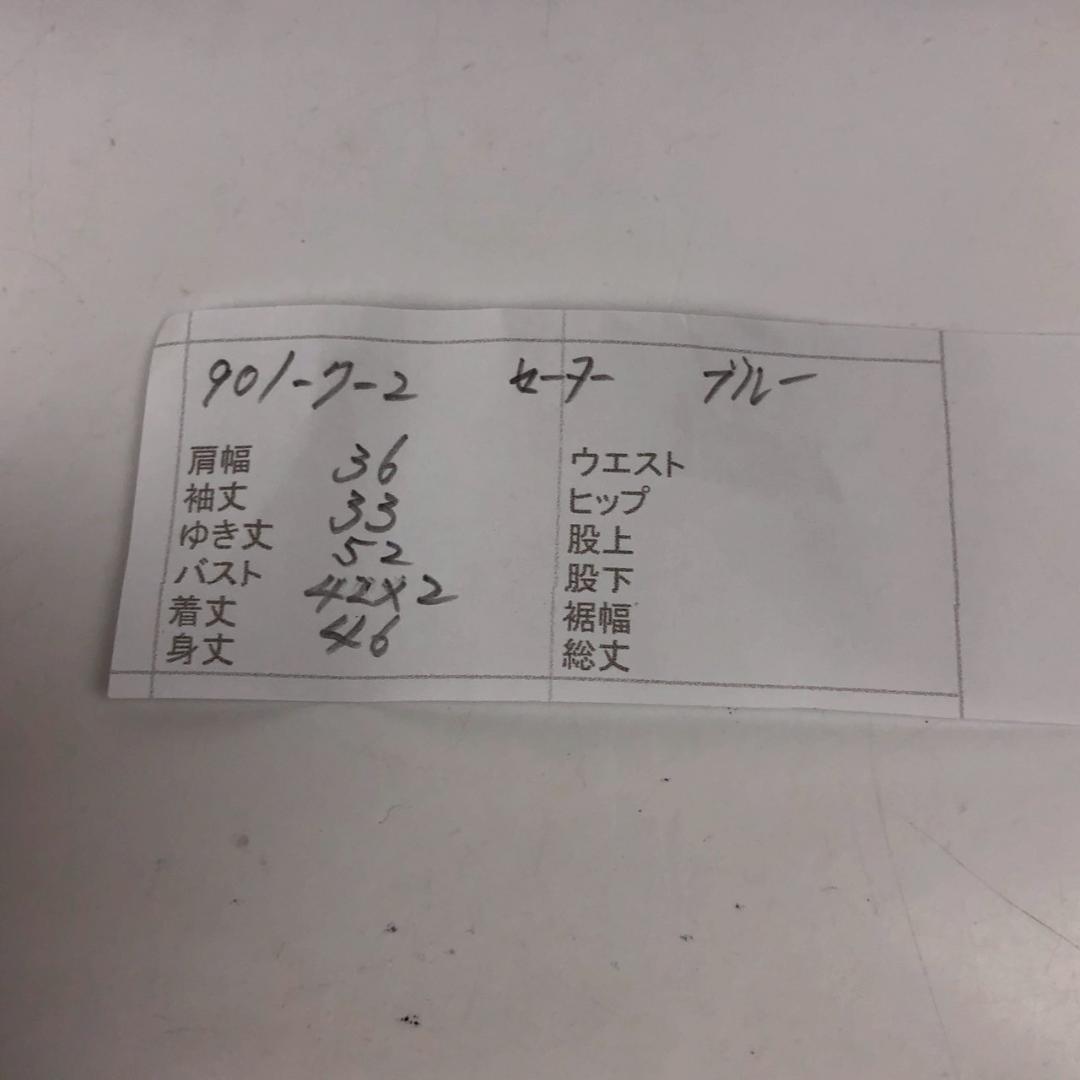 901-7-2 セーター ブルー
肩幅 36
袖丈 33
ゆき丈 52
バスト 42×2
着丈 46
身丈
ウエスト
ヒップ
股上
股下
裾幅
総丈